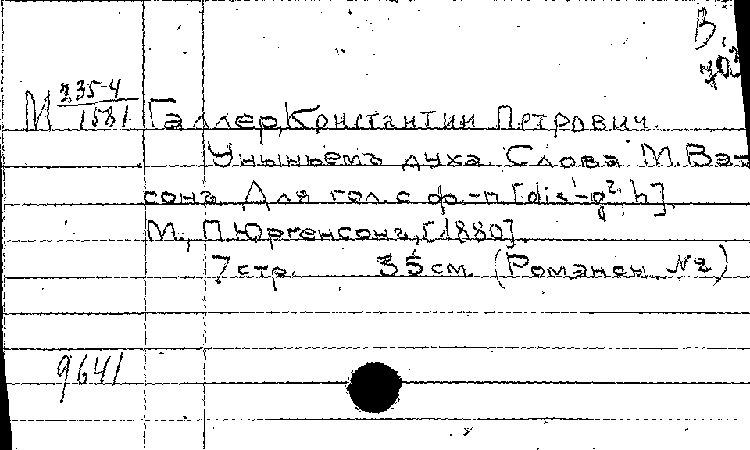 В.
М 235-4/1581
Галлер, Константин Петрович.
Уныньемъ духа. Слова М. Ват-
сона. Для гол. с ф.-п. [dis¹-g², h].
М., П. Юргенсонъ, [1880].
7 стр. 35 см. (Романсы №2)
9641